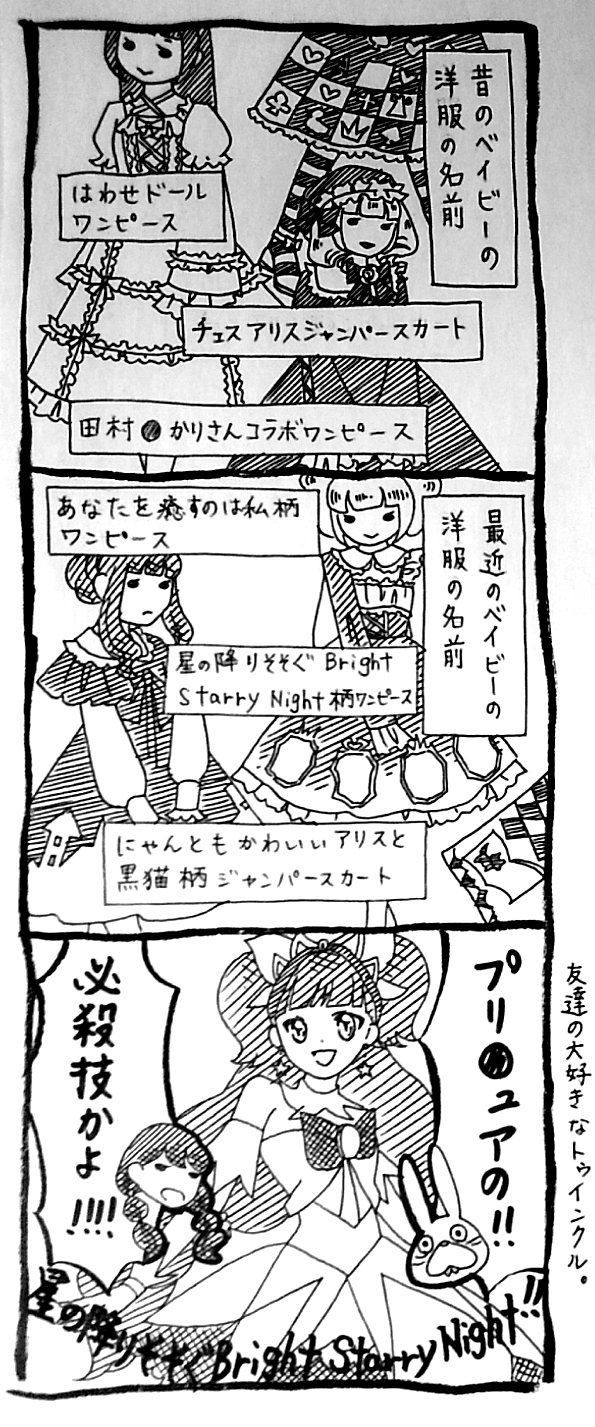 昔のベイビーの
洋服の名前
はわせドール
ワンピース
チェスアリスジャンパースカート
田村●かりさんコラボワンピース
最近のベイビーの
洋服の名前
あなたを癒すのは私柄
ワンピース
星の降りそそぐBright
Starry Night柄ワンピース
にゃんともかわいいアリスと
黒猫柄ジャンパースカート
プリ●ュアの!!
必殺技かよ!!!!
星の降りそそぐBright Starry Night!!
友達の大好きなトゥインクル。